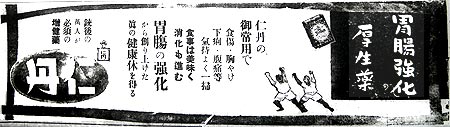 胃腸強化
厚生薬
仁丹の
御常用で
食傷・胸やけ
下痢・腹痛等
気持よく一掃
食事は美味く
消化も進む
胃腸の強化
から創り上げた
真の健康体を得る
銃後の
萬人が
必須の
増健薬
仁丹